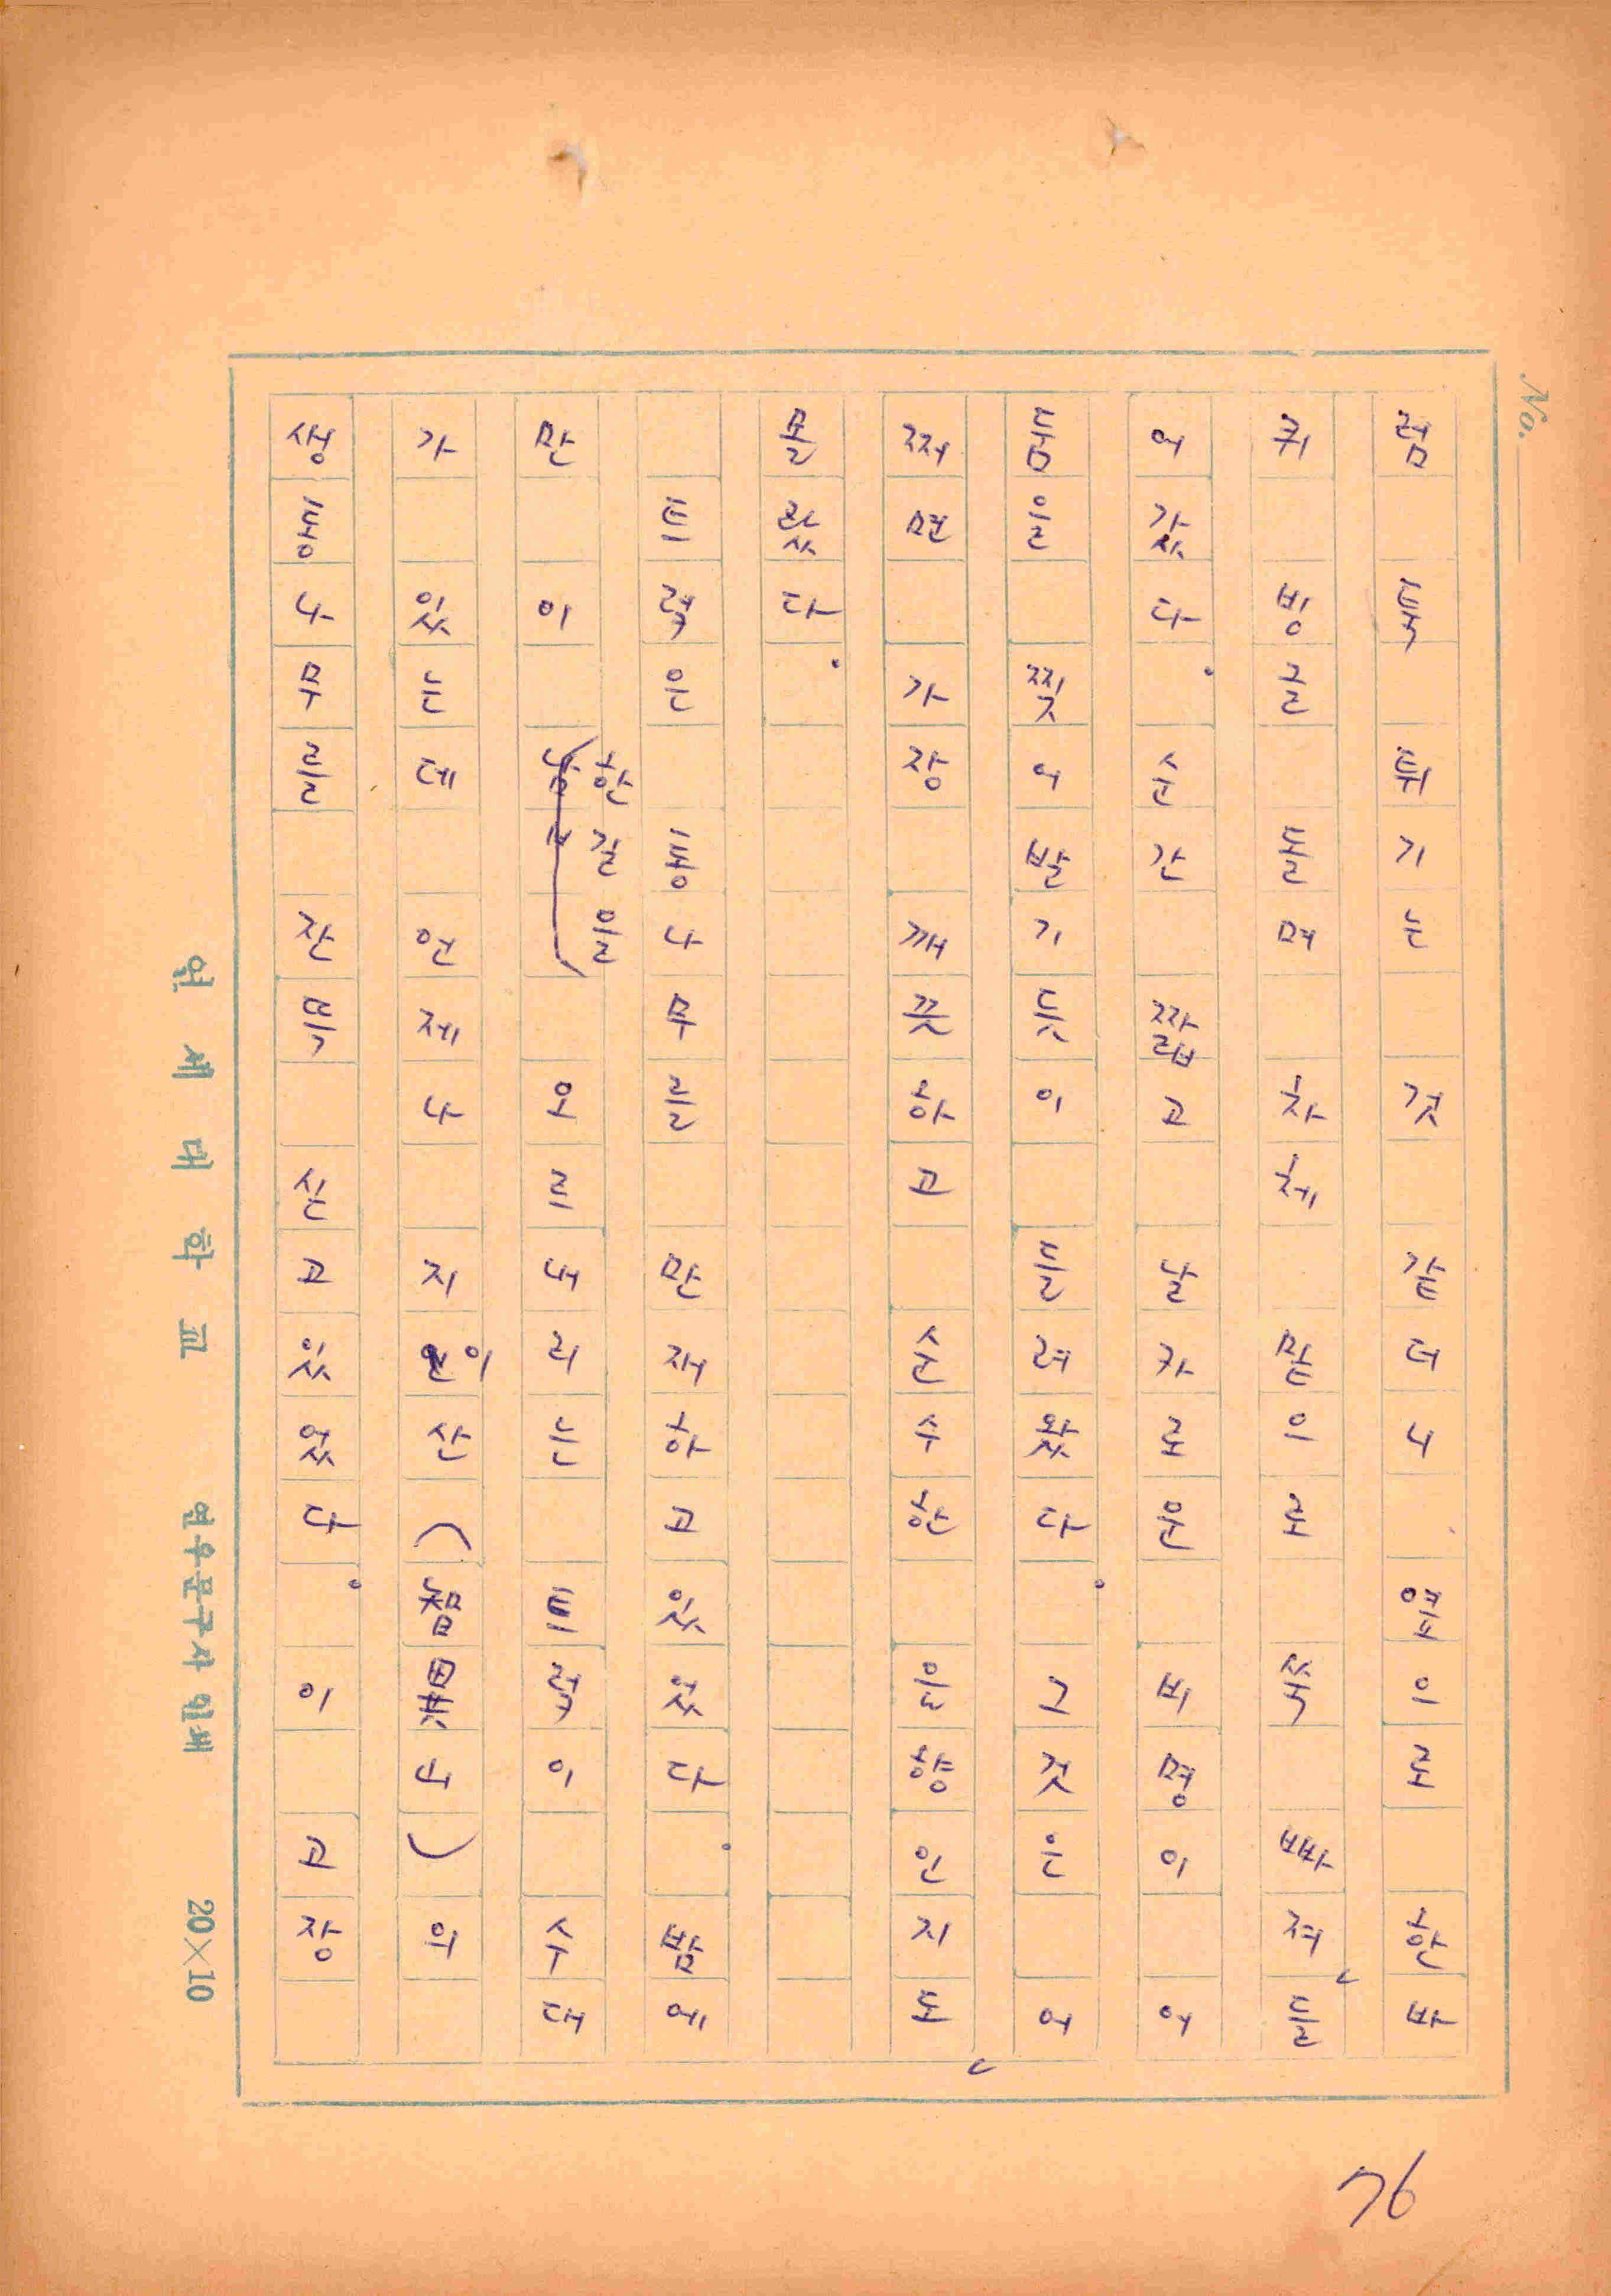 No.
럼 툭 튀기는 것 같더니 옆이로 한바
퀴 빙굴 돌며 차체 밑이로 쑥 빠져, 들
어갔다. 순간 짧고 날카로운 비명이 어
둠을 찢어발기듯이 들려왔다. 그것은 어
쩌면 가장 깨끗하고 순수한 음향인지도,
몰랐다.
트럭은 통나무를 만재하고 있었다. 밤에
만이 한길을 오르내리는 트럭이 수대
가 있는데 언제나 지이산(智異山)의
생통나무를 잔뜩 싣고 있었다. 이 고장
연세대학교 연우문구사 인쇄 20×10
76